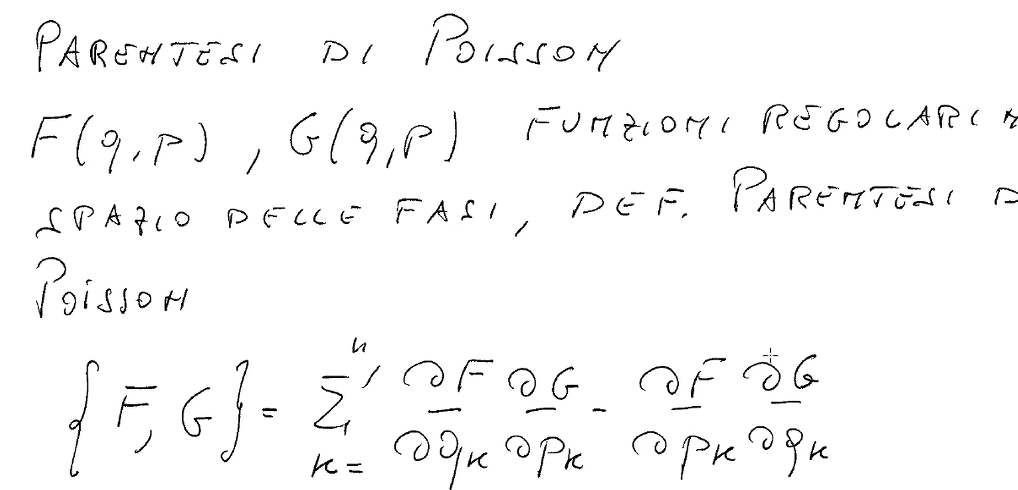 PARENTESI DI POISSON
F(q,p), G(q,p) FUNZIONI REGOLARI N
SPAZIO DELLE FASI, DEF. PARENTESI D
POISSON
{F, G} = Σ_{k=}^{n} ∂F/∂q_k ∂G/∂p_k - ∂F/∂p_k ∂G/∂q_k